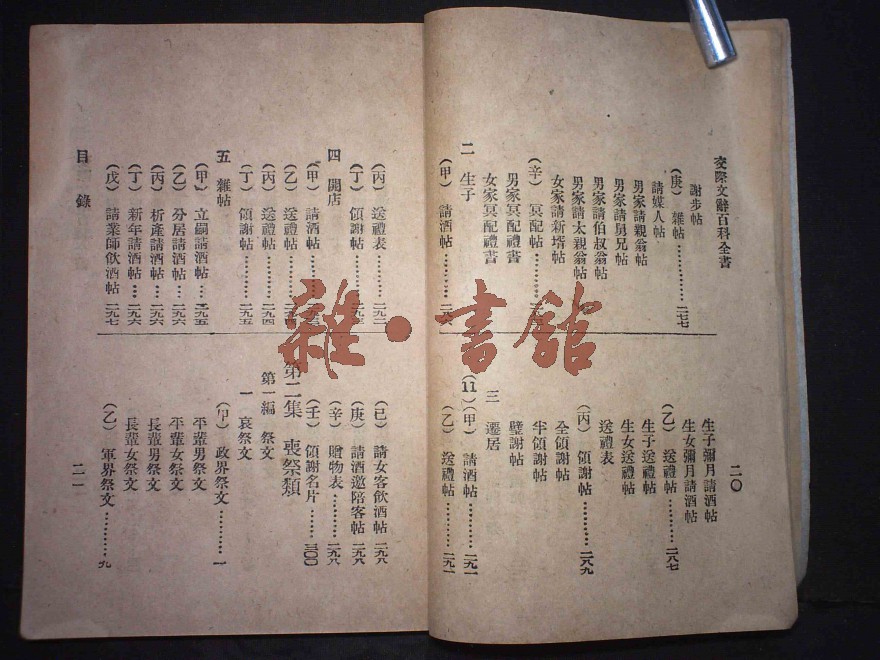 交際文辭百科全書
謝步帖
(庚) 雜帖…………二七七
請媒人帖
男家請親翁帖
男家請舅兄帖
男家請伯叔翁帖
男家請太親翁帖
女家請新壻帖
(辛) 冥配帖
男家冥配禮書
女家冥配禮書
二 生子
(甲) 請酒帖
二〇
生子彌月請酒帖
生女彌月請酒帖
(乙) 送禮帖…………二八七
生子送禮帖
生女送禮帖
送禮表
(丙) 領謝帖…………二八九
全領謝帖
半領謝帖
璧謝帖
三 遷居
(甲) 請酒帖…………二九一
(乙) 送禮帖…………二九一
(丙) 送禮表…………二九二
(丁) 領謝帖
四 開店
(甲) 請酒帖
(乙) 送禮帖
(丙) 送禮帖…………二九四
(丁) 領謝帖…………二九五
五 雜帖
(甲) 立嗣請酒帖…二九五
(乙) 分居請酒帖…二九六
(丙) 析產請酒帖…二九六
(丁) 新年請酒帖…二九六
(戊) 請業師飲酒帖 二九七
目錄
(己) 請女客飲酒帖 二九八
(庚) 請酒邀陪客帖 二九八
(辛) 贈物表…………二九八
(壬) 領謝名片………三〇〇
第二集 喪祭類
第一編 祭文
一 哀祭文
(甲) 政界祭文…………一
平輩男祭文
平輩女祭文
長輩男祭文
長輩女祭文
(乙) 軍界祭文…………九
二一
雜·書館